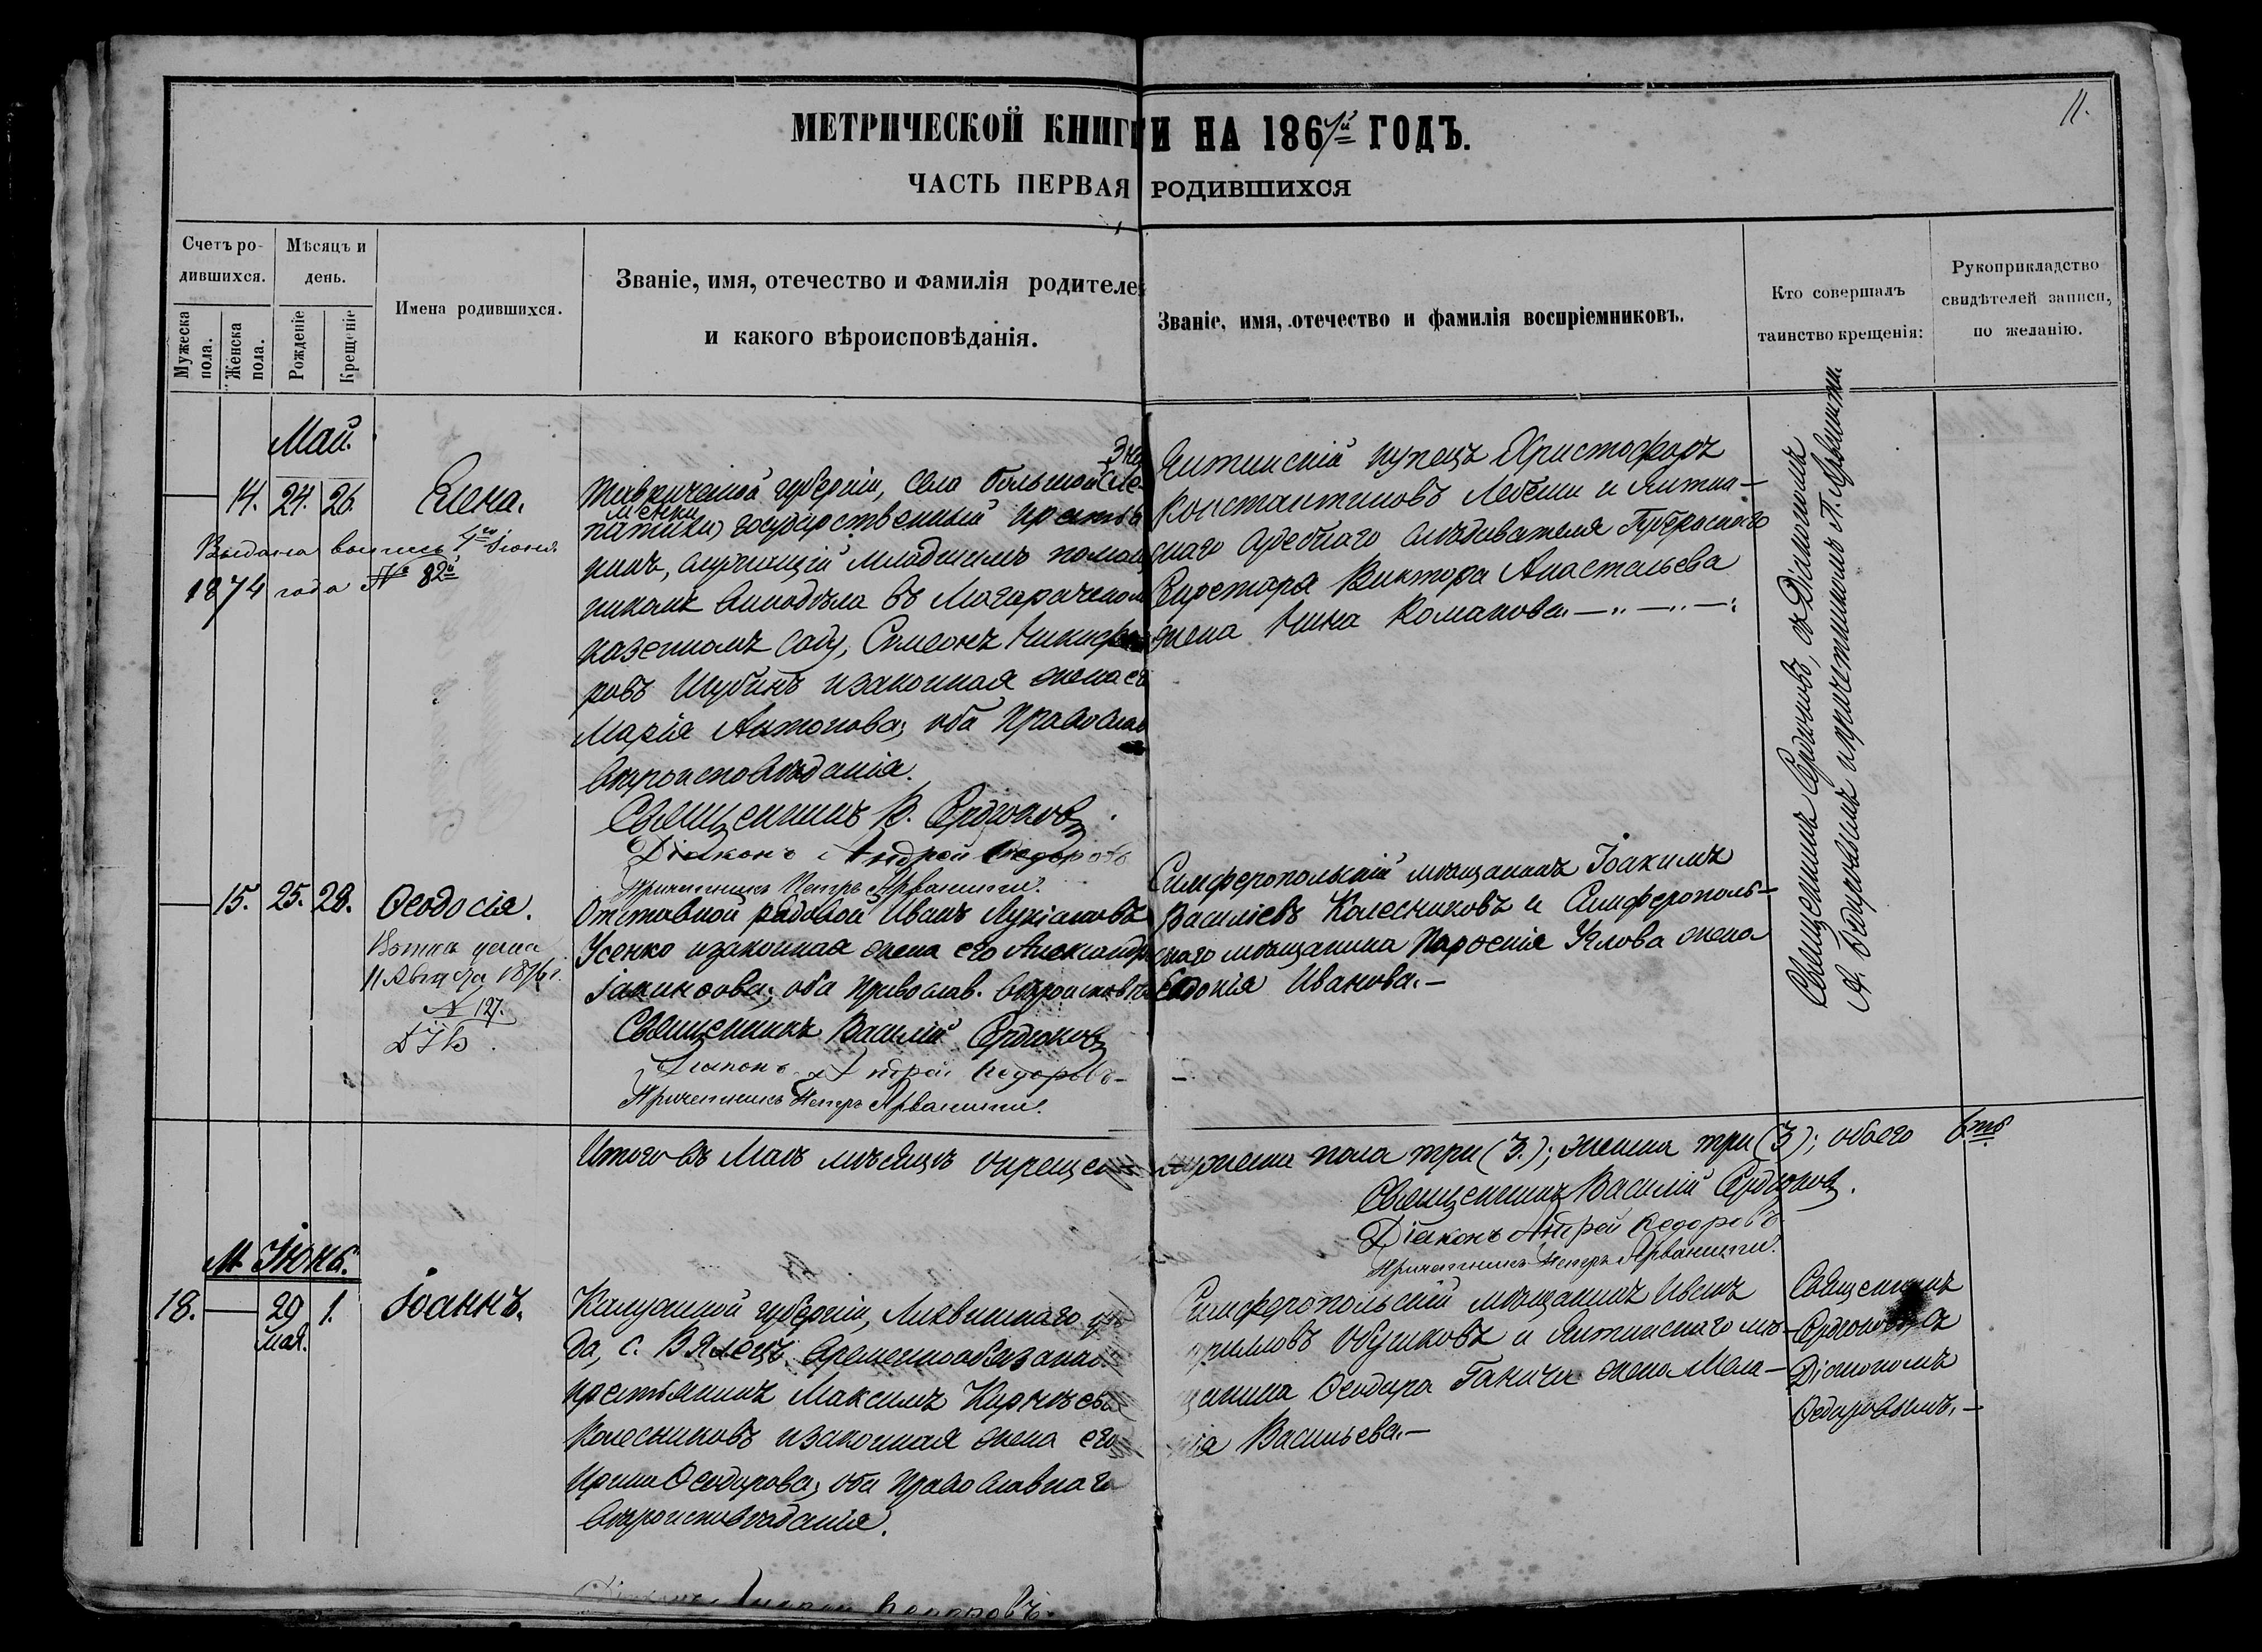 11.
МЕТРИЧЕСКОЙ КНИГИ НА 1867й ГОДЪ.
ЧАСТЬ ПЕРВАЯ РОДИВШИХСЯ
Счетъ ро-
дившихся.
Мужеска пола.
Женска пола.
Мѣсяцъ и
день.
Рожденіе
Крещеніе
Имена родившихся.
Званіе, имя, отечество и фамилія родителей
и какого вѣроисповѣданія.
Званіе, имя, отечество и фамилія воспріемниковъ.
Кто совершалъ
таинство крещенія:
Рукоприкладство
свидѣтелей записи,
по желанію.
Май.
14. 24. 26. Елена.
Выдана выпись 1го Іюня
1874 года № 82й
Таврической губерніи, села большой Зна
менки государственный крестья
нинъ, служащій младшимъ помощ
никомъ винодѣла въ Магарачскомъ
казенномъ саду, Симеонъ Никифо
ровъ Шубинъ и законная жена его
Марія Антонова; оба Православ
вѣроисповѣданія.
Священникъ В. Сердюковъ
Діаконъ Андрей Ѳедоровъ
Причетникъ Петръ Арванити.
Ялтинскій купецъ Христофоръ
Константиновъ Лебеши и Ялтин-
скаго Судебнаго слѣдователя Губернскаго
Секретаря Виктора Анастасьева
жена Анна Романова.
Священникъ Сердюковъ, съ Діакономъ
А. Ѳедоровымъ и причетникомъ П. Арванитжи.
15. 25. 28. Ѳеодосія.
11 Августа 1876 г.
№ 127.
Отставной рядовой Иванъ Лукіановъ
Усенко и законная жена его Александра
Іакинѳова; оба Православ. вѣроисповѣ
Священникъ Василій Сердюковъ
Діаконъ Андрей Ѳедоровъ
Причетникъ Петръ Арванити.
Симферопольскій мѣщанинъ Іоакимъ
Василіевъ Колесниковъ и Симферополь-
скаго мѣщанина Парѳенія Углова жена
Евдокія Иванова.
Итого въ Маѣ мѣсяцѣ окрещено мужеска пола три (3.); женска три (3); обоего 6ть
Священникъ Василій Сердюковъ.
Діаконъ Андрей Ѳедоровъ
Причетникъ Петръ Арванити.
М. Іюнь.
18. 29 1. Іоаннъ.
мая.
Калужской губерніи, Лихвинскаго уѣз
да, с. Вялецъ, временнообязанный
крестьянинъ Максимъ Карнѣевъ
Колесниковъ и законная жена его
Ирина Ѳеодорова; оба Православнаго
вѣроисповѣданія.
Симферопольскій мѣщанинъ Иванъ
Кирилловъ Обушковъ и Ялтинскаго мѣ-
щанина Ѳеодора Ганичи жена Мела-
нія Васильева.
Священникъ
Сердюковъ съ
Діакономъ
Ѳедоровымъ.
Діаконъ Андрей Ѳедоровъ.